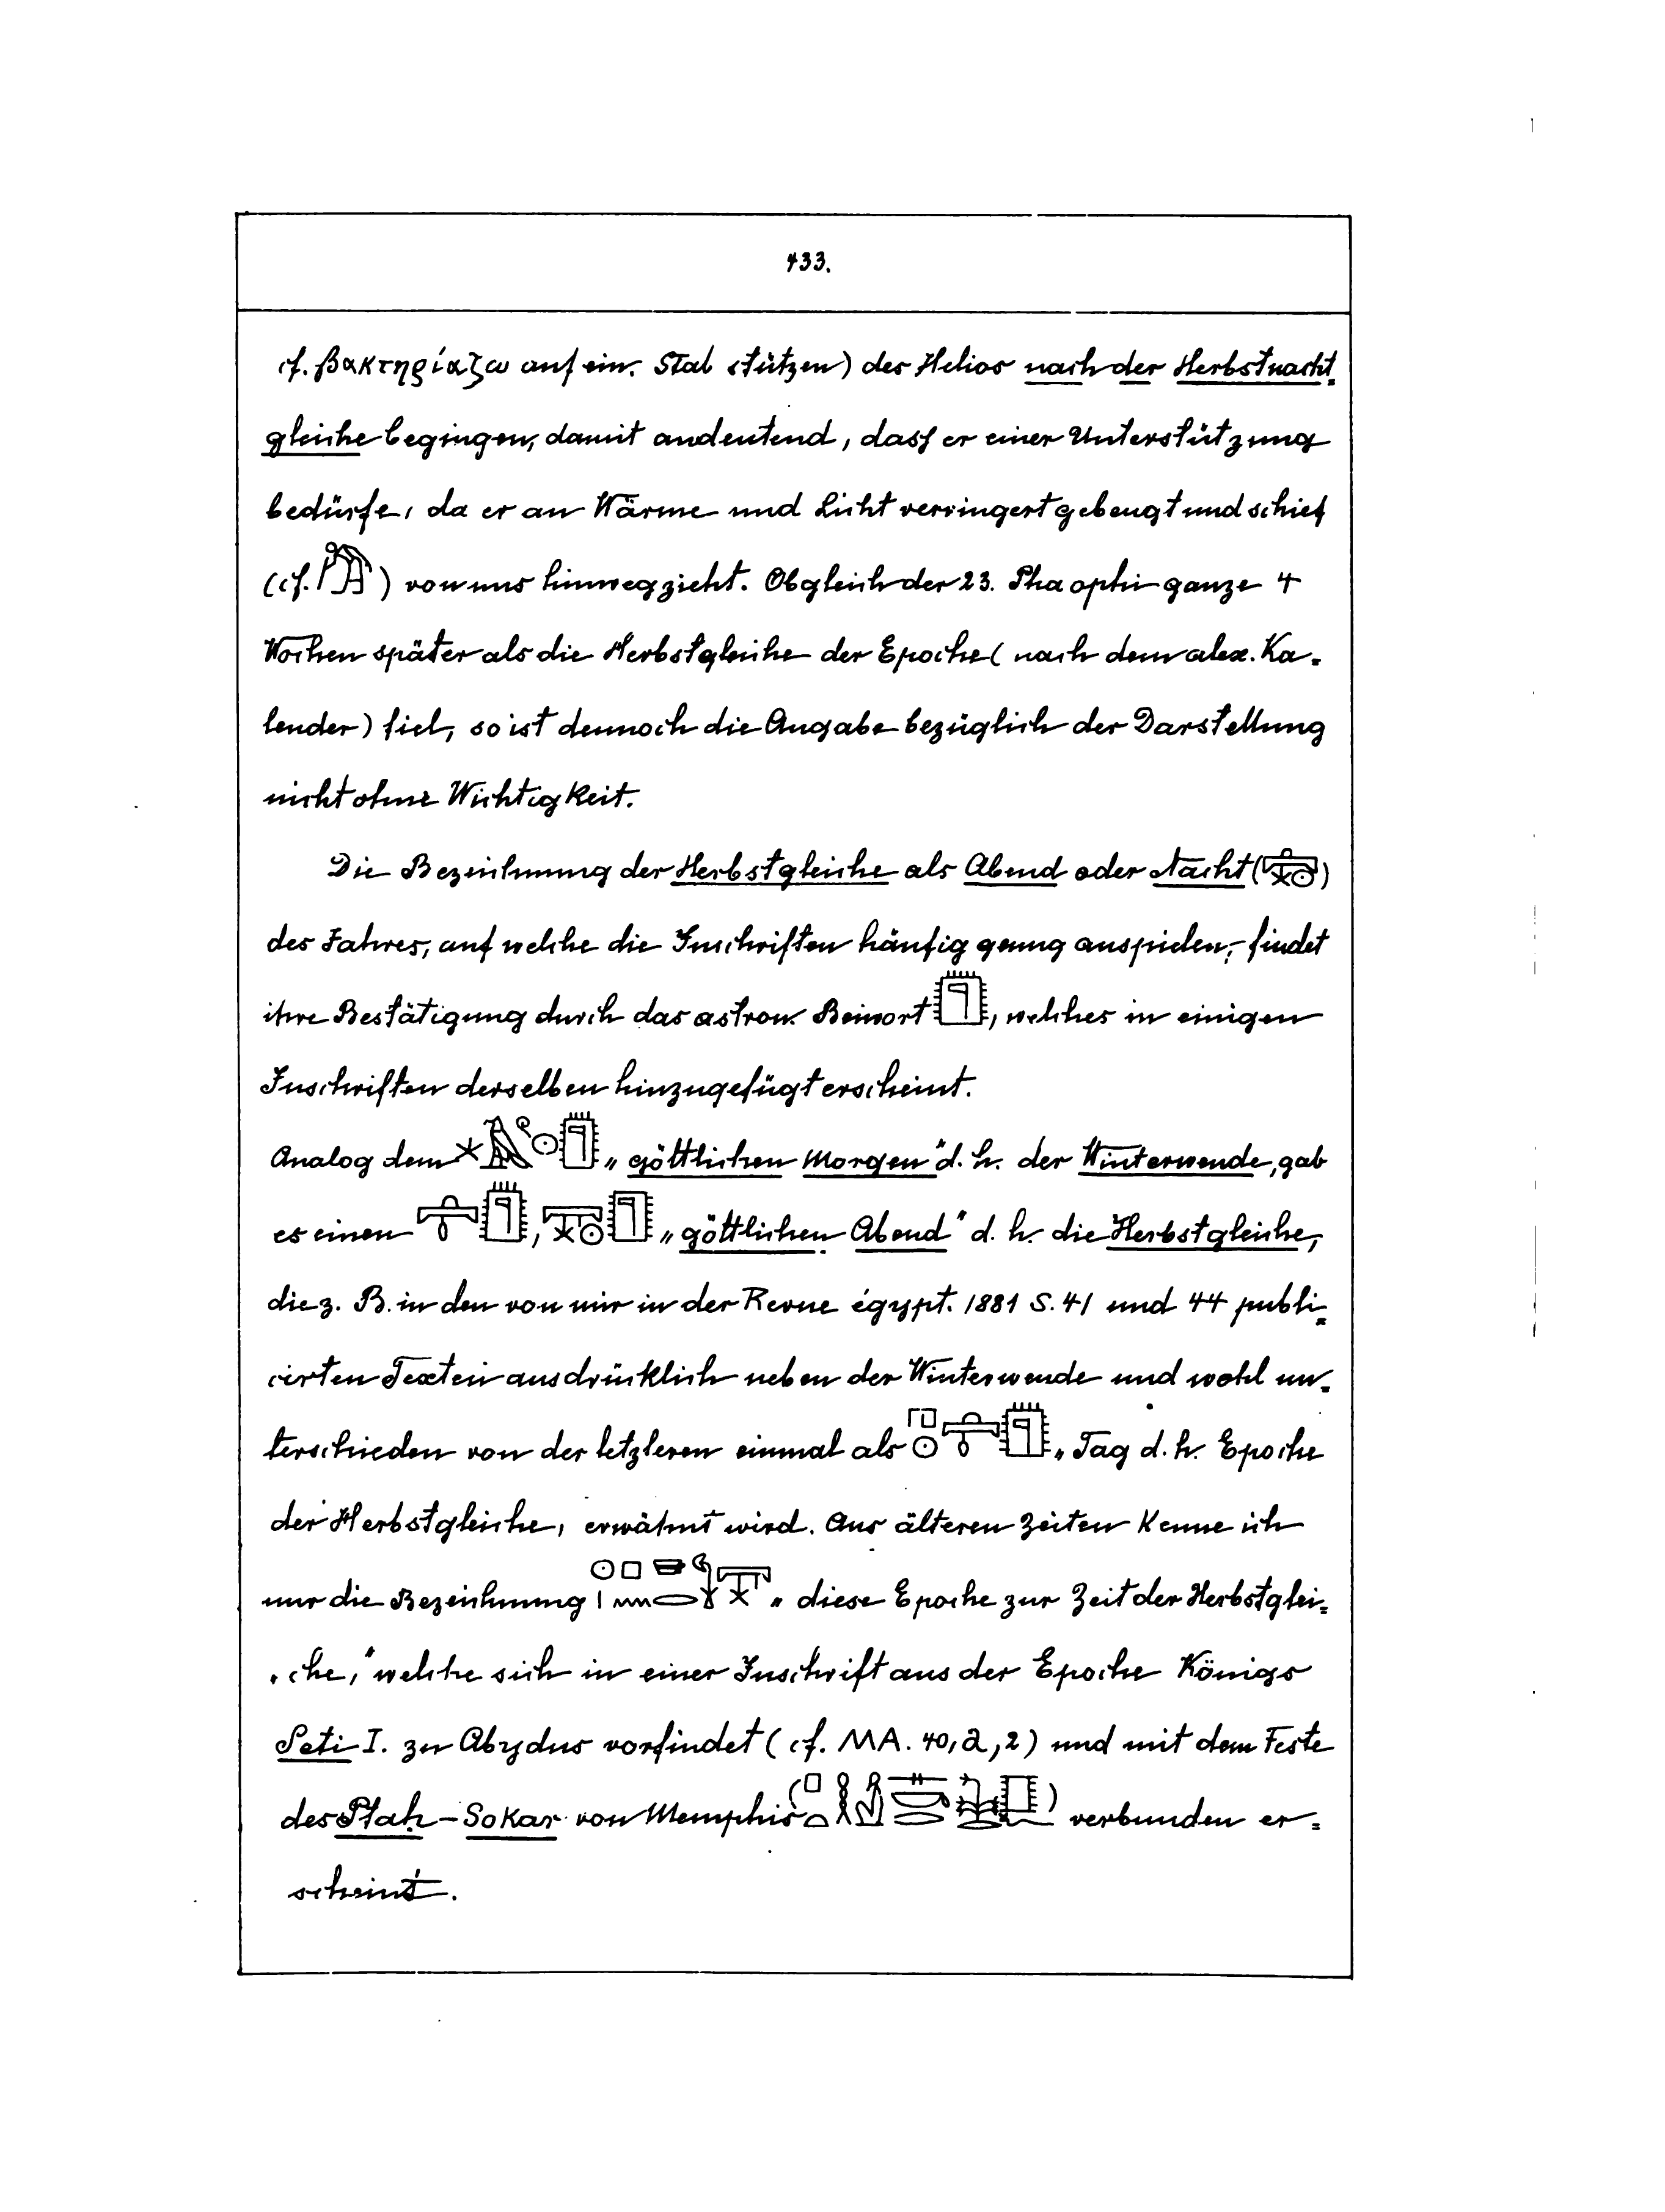 433.
cf. βακτηρίαζω auf ein. Stab stützen) des Helios nach der Herbstnacht-
gleiche begingen, damit andeutend, dass er einer Unterstützung
bedürfe, da er an Wärme und Licht verringert gebeugt und schief
(cf. ) von uns hinwegzieht. Obgleich der 23. Phaophi ganze 4
Wochen später als die Herbstgleiche der Epoche (nach dem alex. Ka-
lender) fiel, so ist dennoch die Angabe bezüglich der Darstellung
nicht ohne Wichtigkeit.
Die Bezeichnung der Herbstgleiche als Abend oder Nacht ( )
des Jahres, auf welche die Inschriften häufig genug anspielen, findet
ihre Bestätigung durch das astron. Beiwort , welches in einigen
Inschriften derselben hinzugefügt erscheint.
Analog dem „göttlichen Morgen" d. h. der Winterwende, gab
es einen , „göttlichen Abend" d. h. die Herbstgleiche,
die z. B. in den von mir in der Revue égypt. 1881 S. 41 und 44 publi-
cirten Texten ausdrücklich neben der Winterwende und wohl un-
terschieden von der letzteren einmal als „Tag d. h. Epoche
der Herbstgleiche, erwähnt wird. Aus älteren Zeiten kenne ich
nur die Bezeichnung „diese Epoche zur Zeit der Herbstglei-
che," welche sich in einer Inschrift aus der Epoche Königs
Seti I. zu Abydus vorfindet (cf. MA. 40, a, 2) und mit dem Feste
des Ptaḥ-Sokar von Memphis ( ) verbunden er-
scheint.